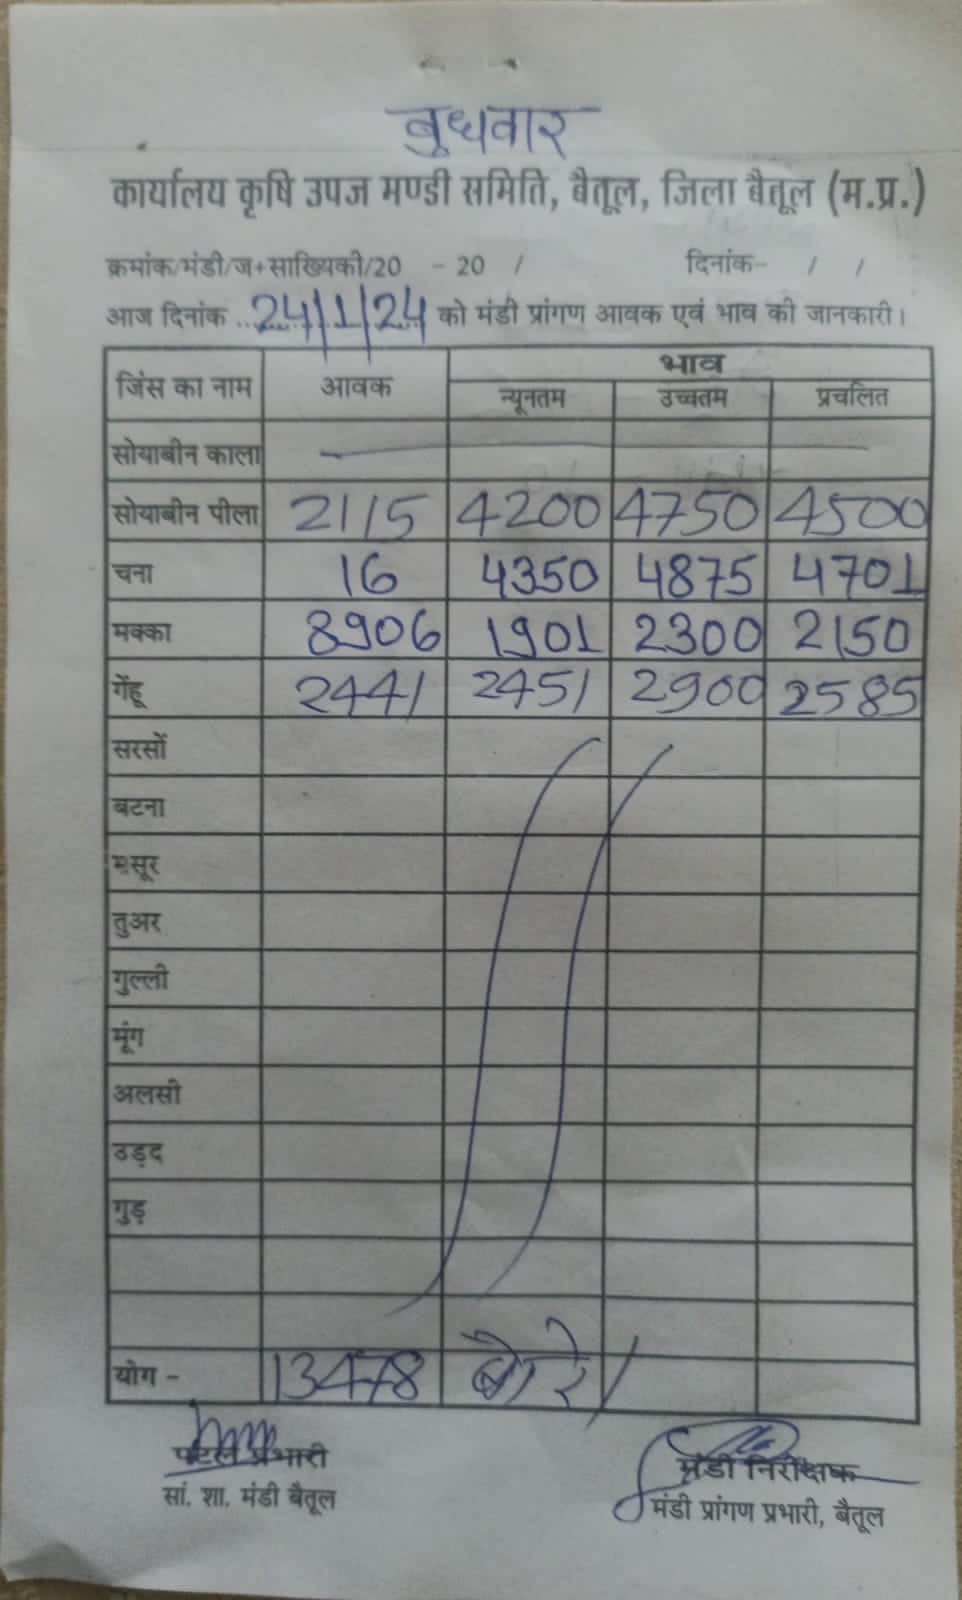 बुधवार
कार्यालय कृषि उपज मण्डी समिति, बैतूल, जिला बैतूल (म.प्र.)
क्रमांक/मंडी/ज+साख्यिकी/20 - 20 / दिनांक- / /
आज दिनांक 24/1/24 को मंडी प्रांगण आवक एवं भाव की जानकारी।
जिंस का नाम आवक भाव
न्यूनतम उच्चतम प्रचलित
सोयाबीन काला —
सोयाबीन पीला 2115 4200 4750 4500
चना 16 4350 4875 4701
मक्का 8906 1901 2300 2150
गेंहू 2441 2451 2900 2585
सरसों
बटना
मसूर
तुअर
गुल्ली
मूंग
अलसी
उड़द
गुड़
योग - 13478 बोरे
प्रभारी मंडी निरीक्षक
सां. शा. मंडी बैतूल मंडी प्रांगण प्रभारी, बैतूल